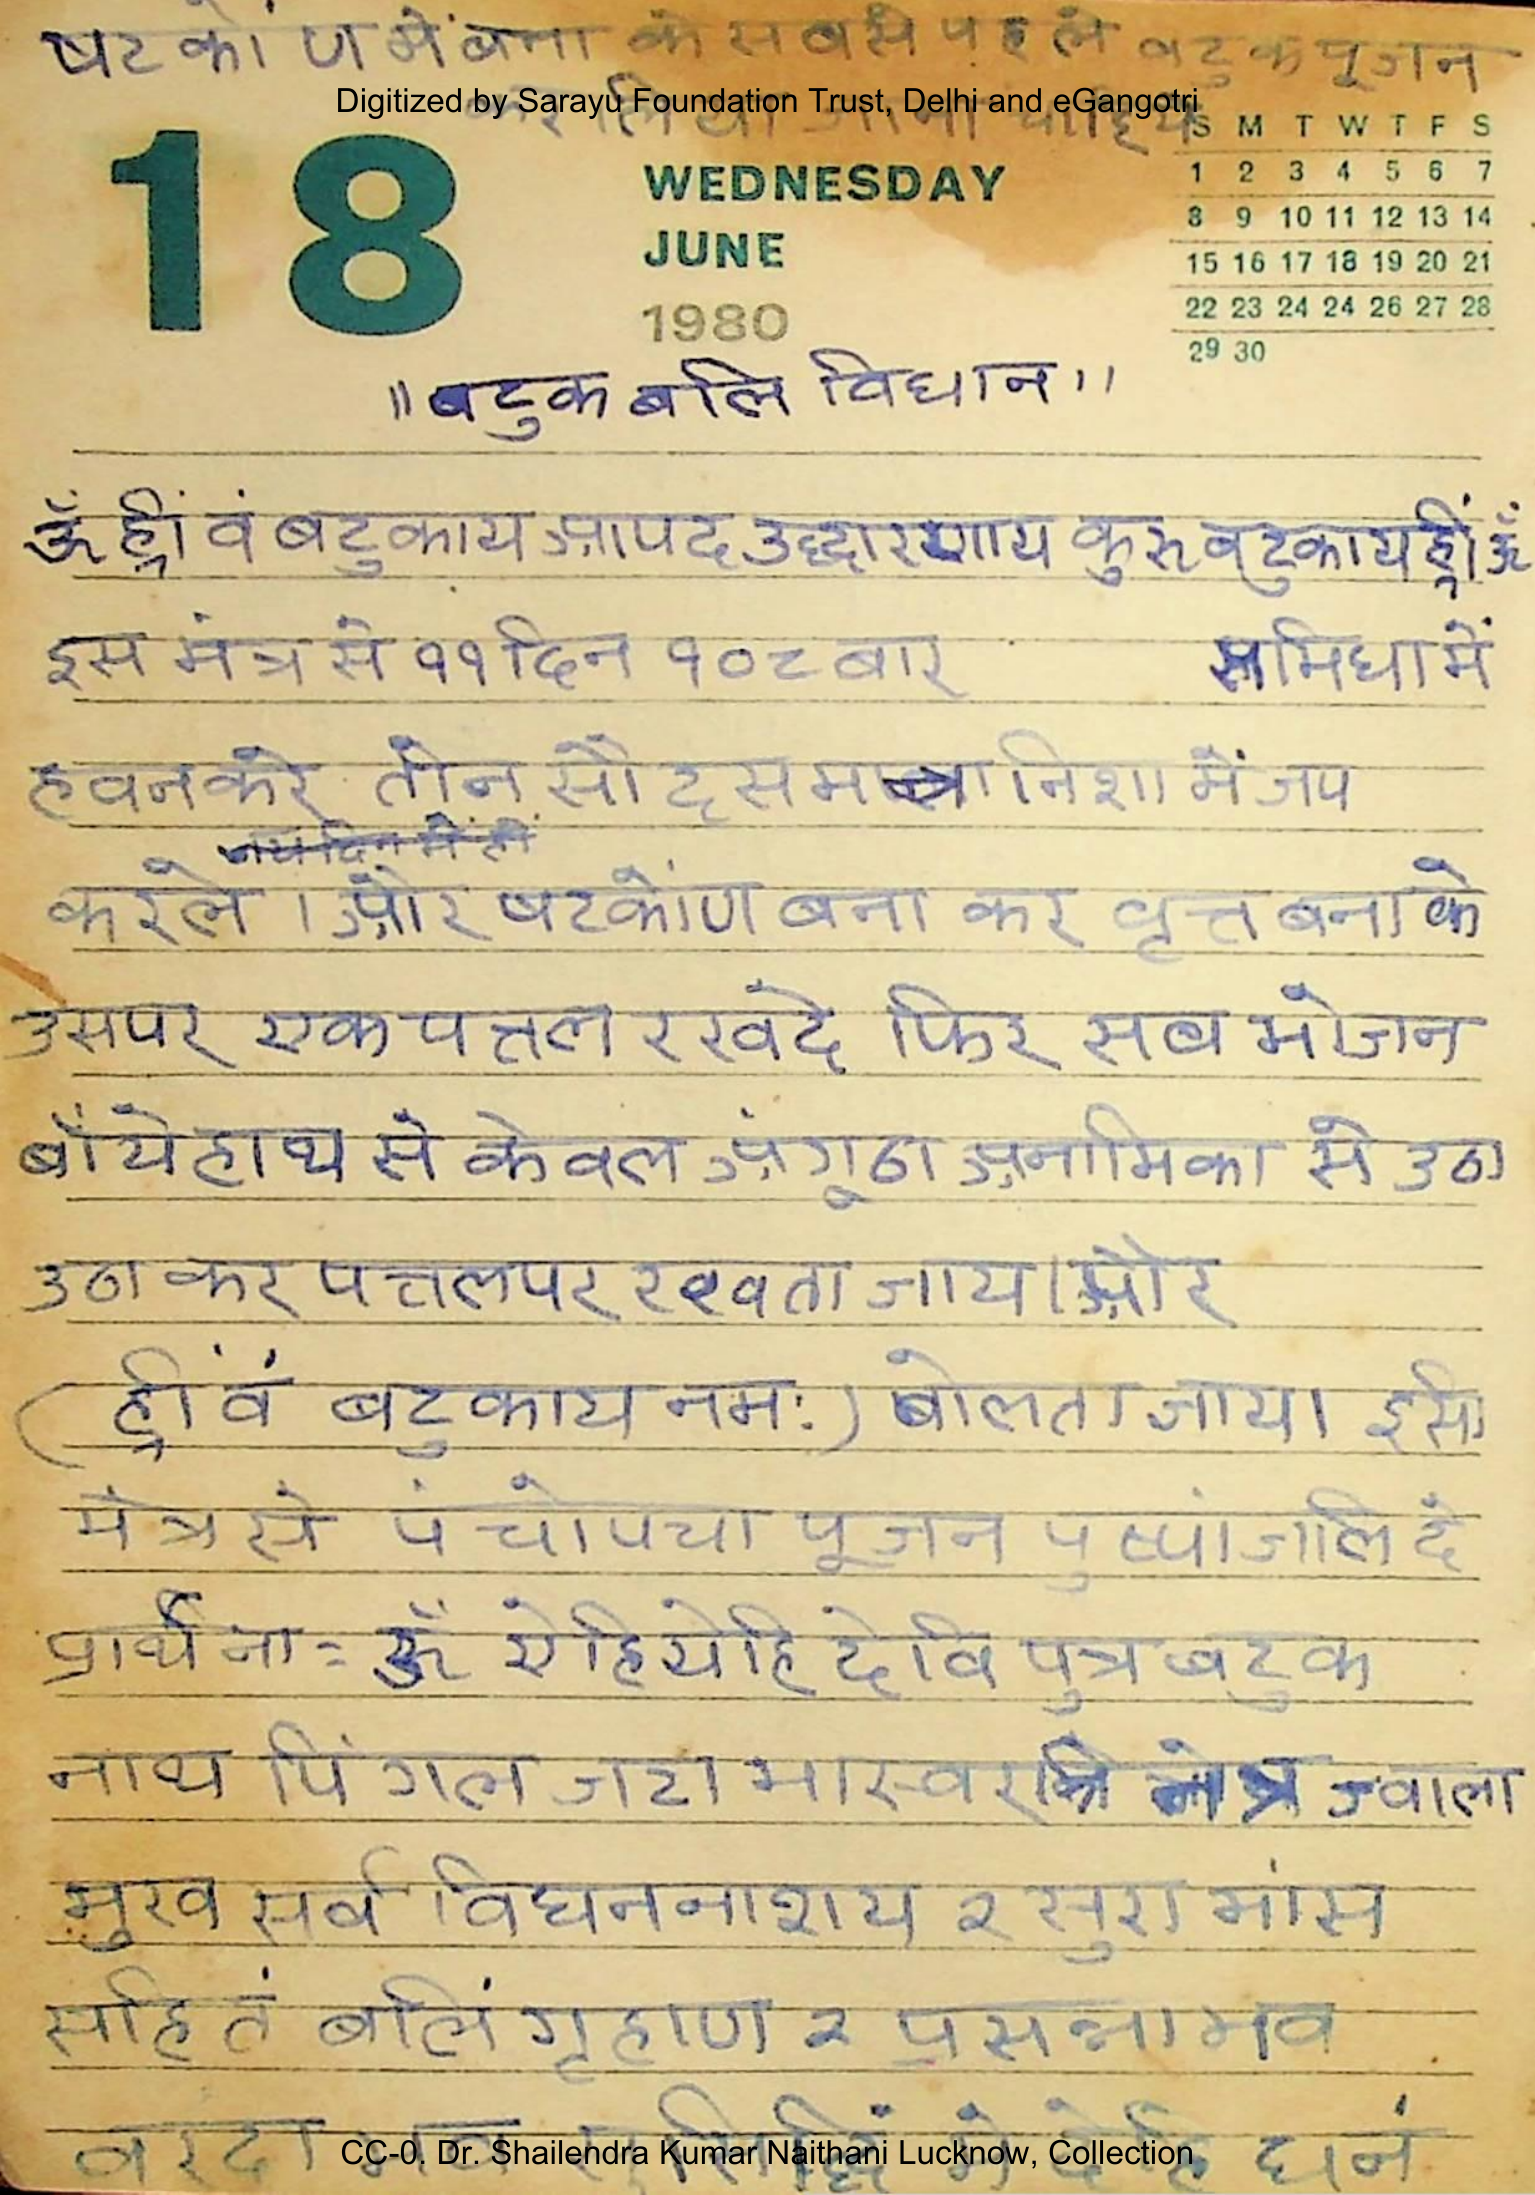 षटकोंण में बना के सबसे पहले बटुक पूजन
Digitized by Sarayu Foundation Trust, Delhi and eGangotri
करलिया जाना चाहिये
18
WEDNESDAY
JUNE
1980
S M T W T F S
1 2 3 4 5 6 7
8 9 10 11 12 13 14
15 16 17 18 19 20 21
22 23 24 24 26 27 28
29 30
"बटुक बलि विधान"
ॐ ह्रीं वं बटुकाय आपद उद्धारणाय कुरु बटुकाय ह्रीं ॐ
इस मंत्र से ११ दिन १०८ बार समिधा में
हवन करे तीन सौ दस निशा में जप
करले । और षटकोंण बना कर वृत्त बना के
उसपर एक पत्तल रखदे फिर सब भोजन
बाँये हाथ से केवल अंगूठा अनामिका से उठा
उठा कर पत्तलपर रखता जाय। और
(ह्रीं वं बटुकाय नमः) बोलता जाय। इसी
मंत्र से पंचोपचा पूजन पुष्पांजलि दे
प्रार्थना:= ॐ ऐहियेहि देवि पुत्र बटुक
नाथ पिंगल जटा भास्वर नेत्र ज्वाला
मुख सर्व विघननाशय २ सुरा मांस
सहितं बलिं गृहाण २ प्रसन्नाभव
वरदा भव मे देहि धनं
CC-0. Dr. Shailendra Kumar Naithani Lucknow, Collection